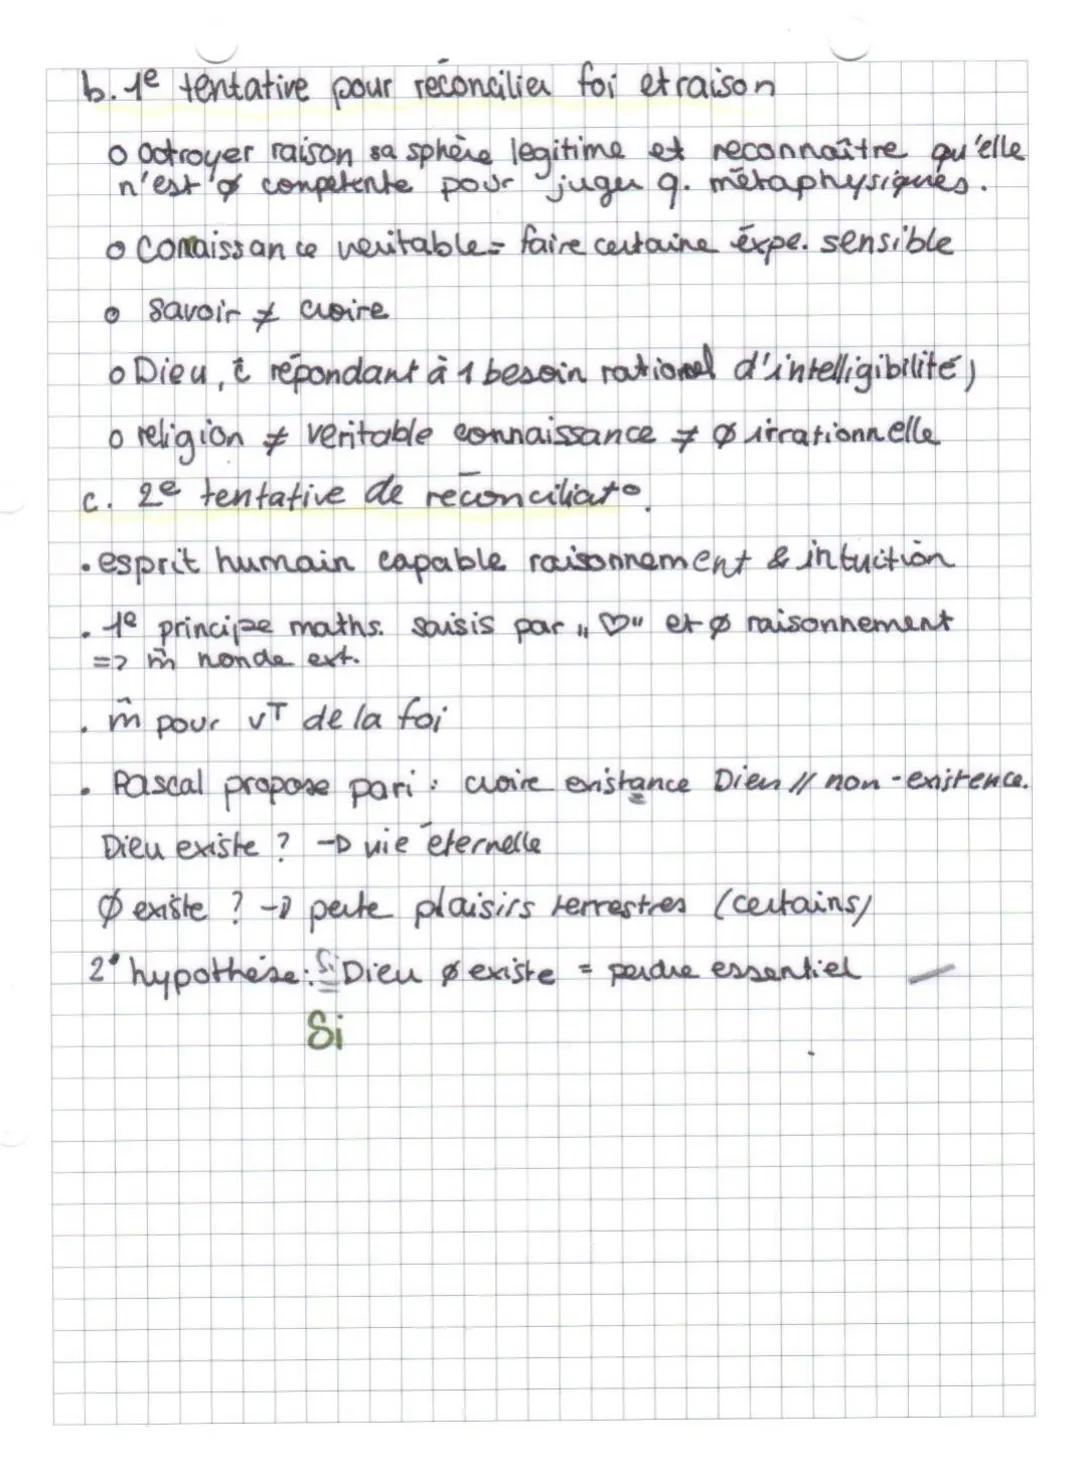 b. 1e tentative pour réconcilier foi et raison
o octroyer raison sa sphère légitime et reconnaître qu'elle
n'est ø compétente pour juger q. métaphysiques.
o Connaissance véritable = faire certaine expe. sensible
o savoir ≠ croire
o Dieu, c̄ répondant à 1 besoin rationnel d'intelligibilité)
o religion ≠ veritable connaissance ≠ ø irrationnelle
c. 2e tentative de réconciliato.
• esprit humain capable raisonnement & intuition
• 1e principe maths. saisis par " ♡" et ø raisonnement
=> m̂ monde ext.
• m̂ pour vT de la foi
• Pascal propose pari : croire existance Dieu // non-existence.
Dieu existe ? -> vie éternelle
Ø existe ? -> perte plaisirs terrestres (certains)
2° hypothèse: Si Dieu ø existe = perdre essentiel —
Si